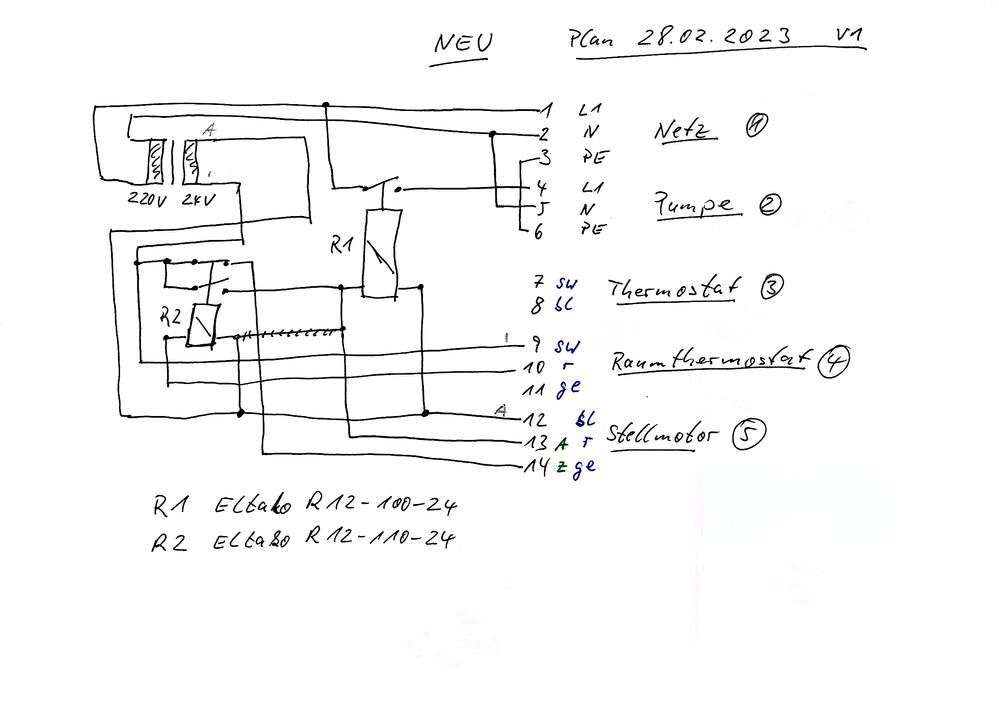 NEU Plan 28.02.2023 V1
1 L1
2 N Netz 1
3 PE
4 L1
5 N Pumpe 2
6 PE
A
220V 24V
R1
7 sw Thermostat 3
8 bl
R2
9 sw
10 r Raumthermostat 4
11 ge
A 12 bl
13 A r Stellmotor 5
14 Z ge
R1 Eltako R12-100-24
R2 Eltako R12-110-24